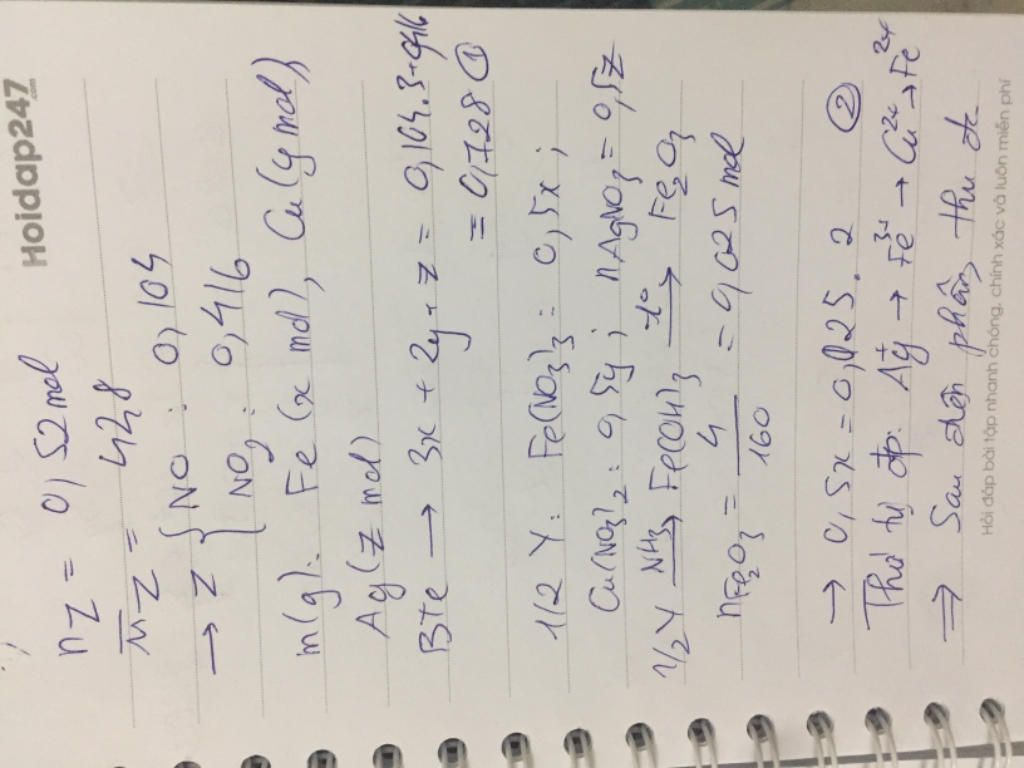 Hoidap247
.com
nZ = 0,52 mol
M̅Z = 42,8
→ Z { NO : 0,104
NO2 : 0,416
m(g): Fe (x mol), Cu (y mol),
Ag (z mol)
BTe → 3x + 2y + z = 0,104.3+0,416
= 0,728 ①
1/2 Y: Fe(NO3)3 : 0,5x ;
Cu(NO3)2 : 0,5y ; nAgNO3 = 0,5z
1/2 Y NH3→ Fe(OH)3 t°→ Fe2O3
nFe2O3 = 4/160 = 0,025 mol
→ 0,5x = 0,025.2 ②
Thứ tự đp: Ag+ → Fe3+ → Cu2+ → Fe2+
⇒ Sau điện phân, thu đc
Hỏi đáp bài tập nhanh chóng, chính xác và luôn miễn phí